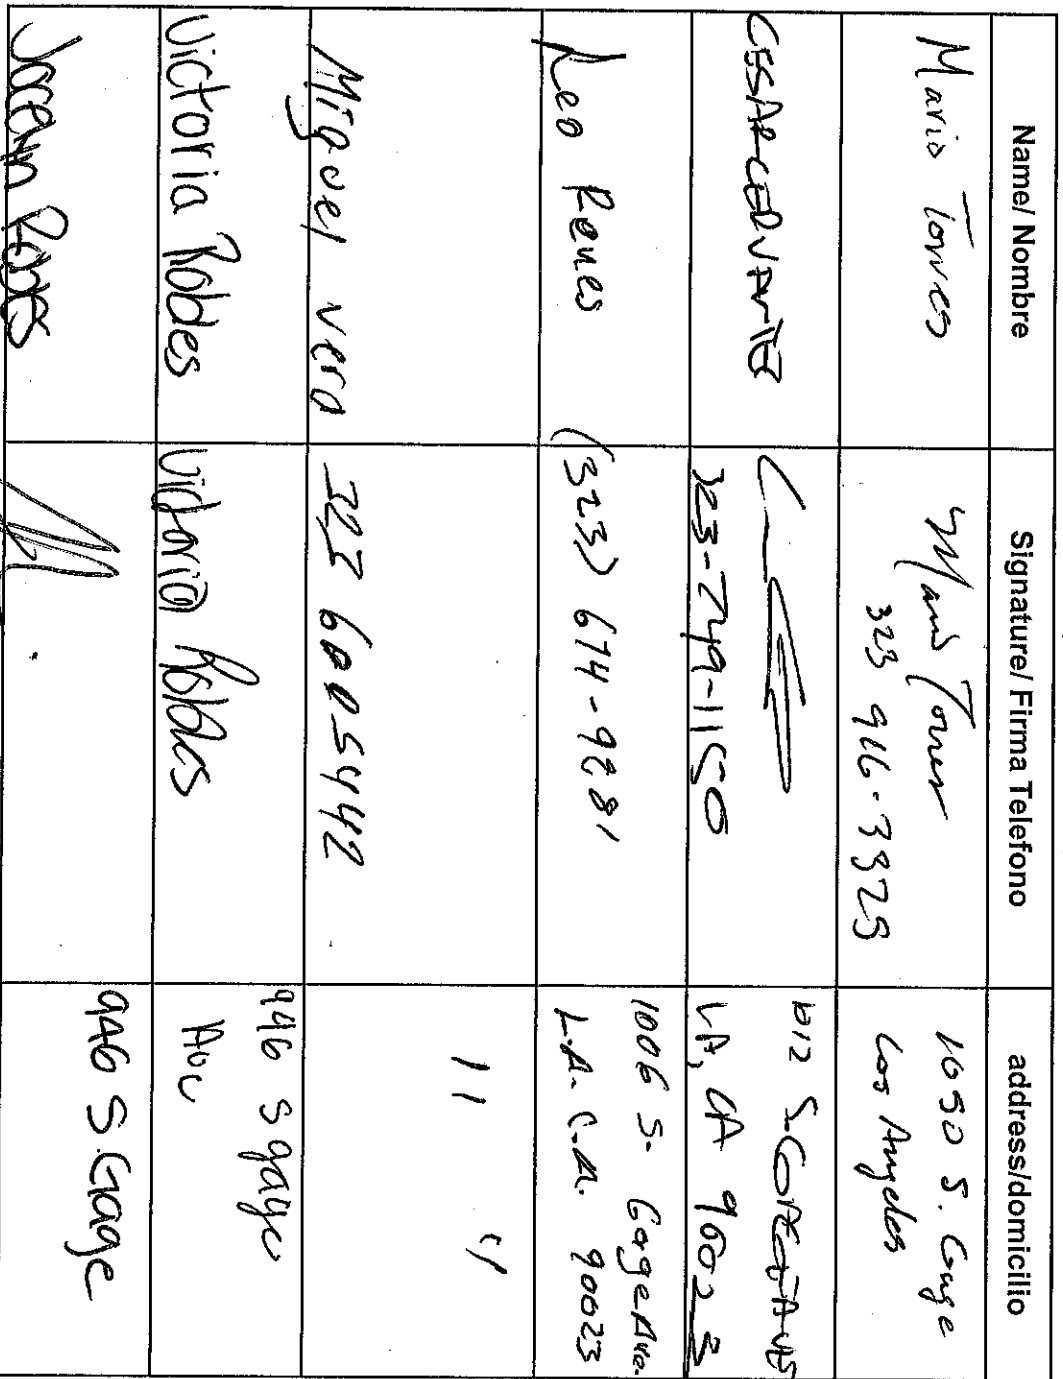 Name/ Nombre
Signature/ Firma Telefono
address/domicilio
Mario Torres
Mario Torres
323 916-3325
1050 S. Gage
Los Angeles
CESAR CERVANTE
323-749-1150
1012 S. GAGE AVE
LA, CA 90023
Leo Reues
(323) 674-9881
1006 S. Gage Ave.
L.A. C.A. 90023
Miguel vera
323 6005442
11 "
Victoria Robles
Victoria Robles
946 S gage
Ave
Robles
946 S. Gage